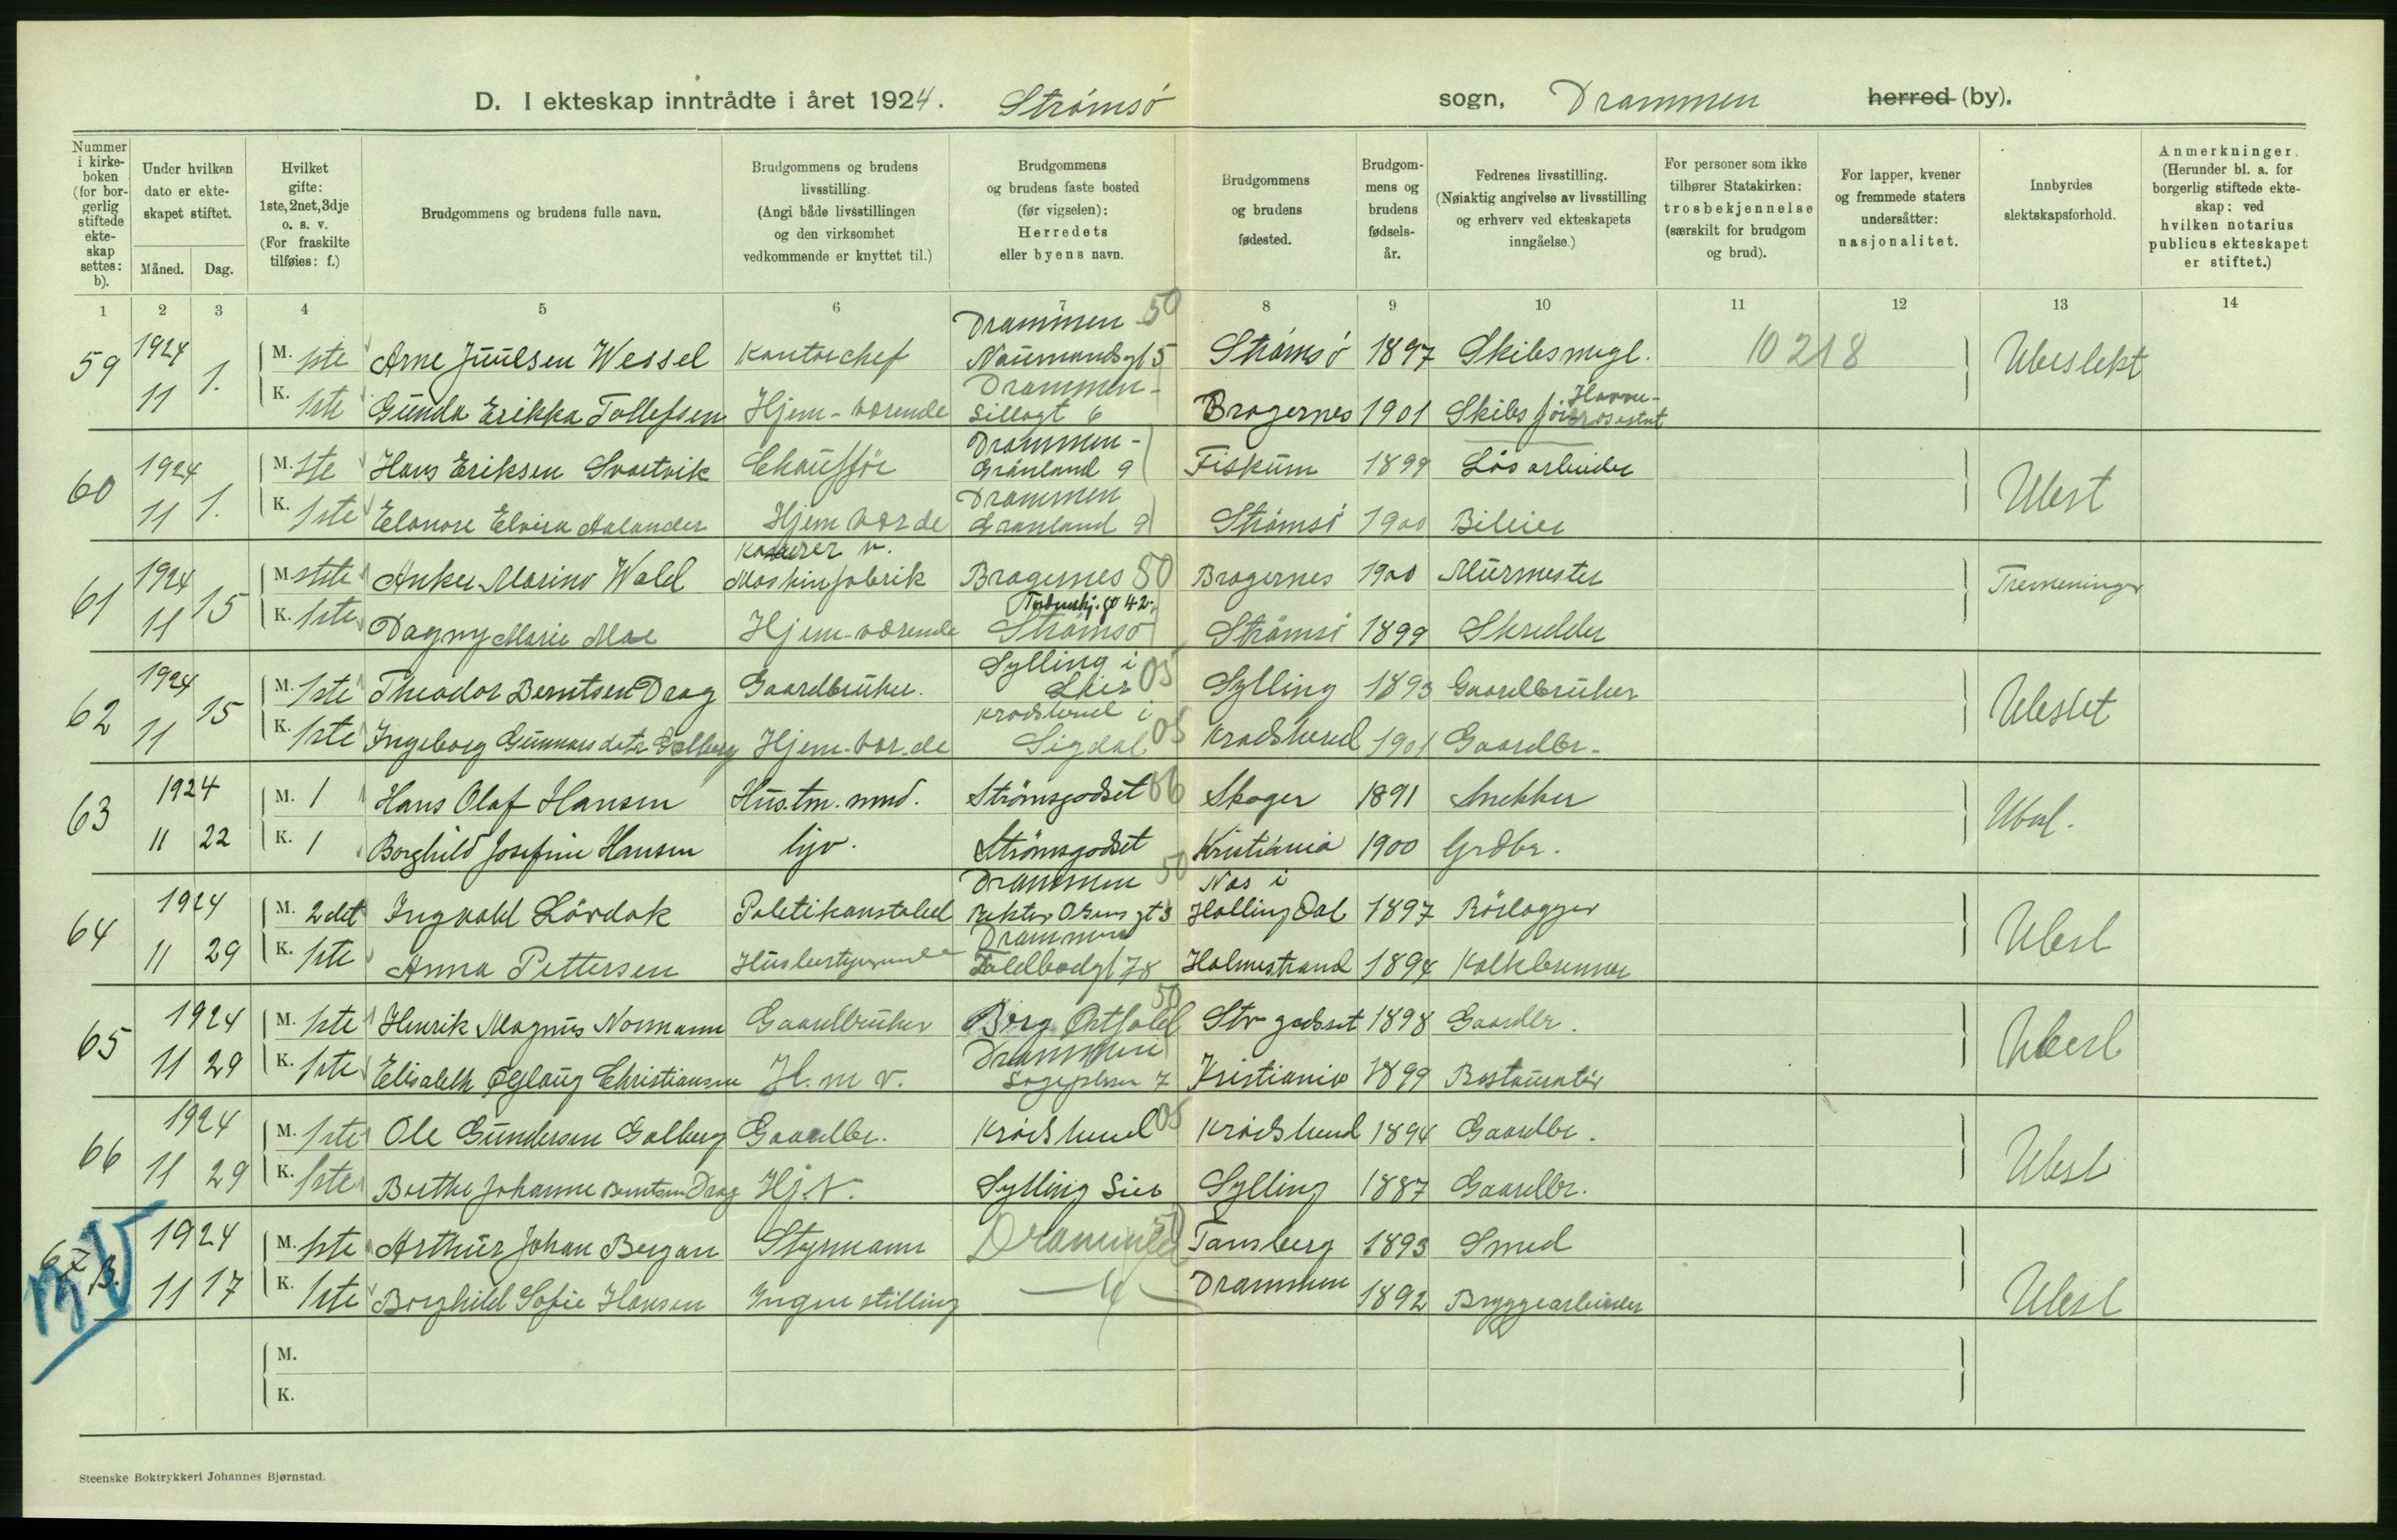 D. I ekteskap inntrådte i året 1924. Strømsø sogn, Drammen herred (by).
Nummer i kirke-boken (for bor-gerlig stiftede ekte-skap settes: b).
Under hvilken dato er ekte-skapet stiftet.
Måned. Dag.
Hvilket gifte: 1ste, 2net, 3dje o. s. v. (For fraskilte tilføies: f.)
Brudgommens og brudens fulle navn.
Brudgommens og brudens livsstilling. (Angi både livsstillingen og den virksomhet vedkommende er knyttet til.)
Brudgommens og brudens faste bosted (før vigselen): Herredets eller byens navn.
Brudgommens og brudens fødested.
Brudgom-mens og brudens fødsels-år.
Fedrenes livsstilling. (Nøiaktig angivelse av livsstilling og erhverv ved ekteskapets inngåelse.)
For personer som ikke tilhører Statskirken: trosbekjennelse (særskilt for brudgom og brud).
For lapper, kvener og fremmede staters undersåtter: nasjonalitet.
Innbyrdes slektskapsforhold.
Anmerkninger. (Herunder bl. a. for borgerlig stiftede ekte-skap: ved hvilken notarius publicus ekteskapet er stiftet.)
1 2 3 4 5 6 7 8 9 10 11 12 13 14
59 1924 11 1. M. 1ste Arne Juulsen Wessel Kontorchef Drammen 50 Naumandsgt 5 Strømsø 1897 Skibsmegl. 10218 Ubeslekt
K. 1ste Gunda Erikka Tollefsen Hjem-værende Drammen- 6 Bragernes 1901 Skibs
60 1924 11 1. M. 1ste Hans Eriksen Svartvik Chauffør Drammen- Grønland 9 Fiskum 1899 Løsarbeider Ubest
K. 1ste Elonore Elvira Aalander Hjem værde Drammen Grønland 9 Strømsø 1900 Bileier
61 1924 11 15 M. 1ste Anker Marino Wald Kasserer v. Maskinfabrik Bragernes 50 Bragernes 1900 Murmester Tremeninger
K. 1ste Dagny Marie Moe Hjem-værende 42 Strømsø Strømsø 1899 Skredder
62 1924 11 15 M. 1ste Theodor Berntsen Drag Gaardbruker. Sylling i Lier 05 Sylling 1893 Gaardbruker Ubeslet
K. 1ste Ingeborg Gunnarsdatr Golberg Hjem-vær.de Krødsherad i Sigdal 05 Krødsherad 1901 Gaardbr.
63 1924 11 22 M. 1 Hans Olaf Hansen Hus.tm. Strømsgodset 06 Skoger 1891 Snekker Ubesl.
K. 1 Borghild Josefine Hansen hjv. Strømsgodset Kristiania 1900 Grdbr.
64 1924 11 29 M. 2det Ingvald Lövdok Politikonstabel Drammen 50 Rektor Olsens gt 3 Nes i Hallingdal 1897 Rörlegger Ubesl
K. 1ste Anna Pettersen Husbestyrerinde Drammen Toldbodgt 78 Holmestrand 1894 Kalkbrenner
65 1924 11 29 M. 1ste Henrik Magnus Normann Gaardbruker Borg Østfold Str godset 1898 Gaardbr. Ubesl
K. 1ste Elisabeth Christiansen H. m v. Drammen 50 7 Kristiania 1899 Restauratør
66 1924 11 29 M. 1ste Ole Gundersen Golberg Gaardbr. Krødsherad 05 Krødsherad 1894 Gaardbr. Ubesl
K. 1ste Borthe Johanne Berntsen Drag Hj. v. Sylling Lier Sylling 1887 Gaardbr.
67 B. 1924 11 17 M. 1ste Arthur Johan Bergan Styrmann Drammen 50 Tønsberg 1893 Smed Ubesl
K. 1ste Borghild Sofie Hansen Ingen stilling — " — Drammen 1892 Bryggearbeider
M.
K.
Steenske Boktrykkeri Johannes Bjørnstad.